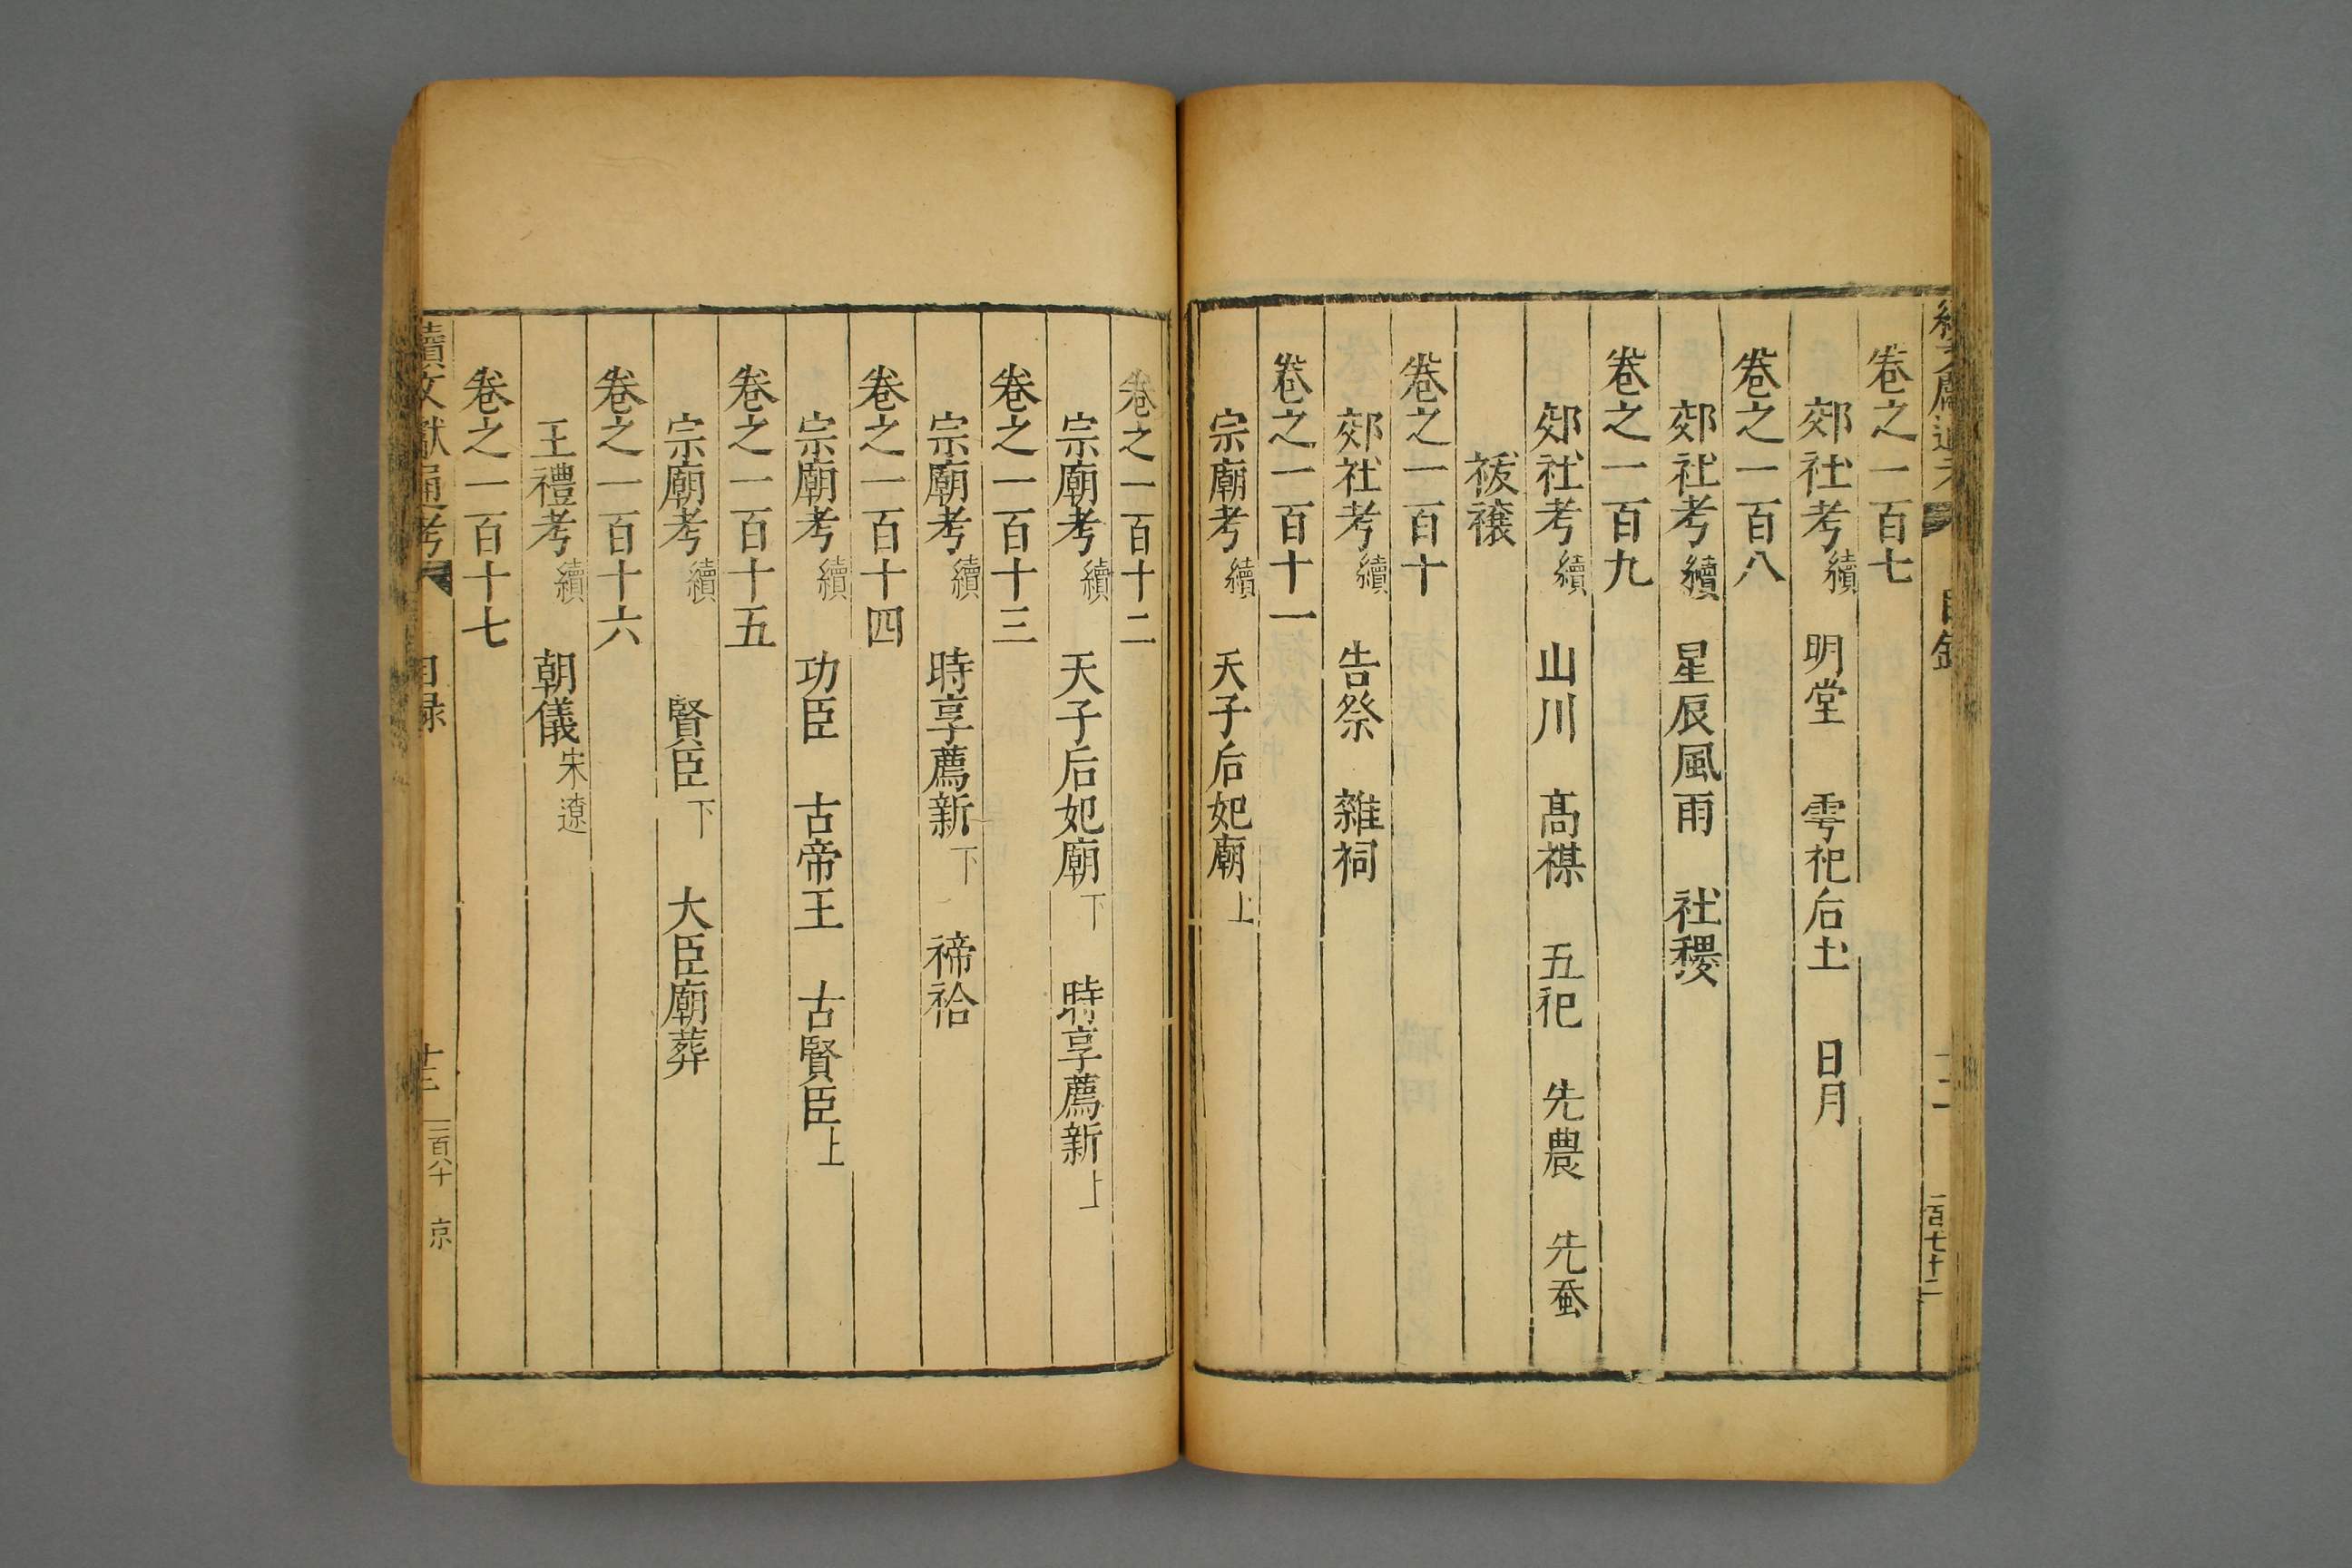 續文獻通考
目錄
十二
一百七十二
卷之一百七
郊社考續 明堂 雩祀后土 日月
卷之一百八
郊社考續 星辰風雨 社稷
卷之一百九
郊社考續 山川 髙禖 五祀 先農 先蚕
祓禳
卷之一百十
郊社考續 告祭 雜祠
卷之一百十一
宗廟考續 天子后妃廟上
卷之一百十二
宗廟考續 天子后妃廟下 時享薦新上
卷之一百十三
宗廟考續 時享薦新下 禘祫
卷之一百十四
宗廟考續 功臣 古帝王 古賢臣上
卷之一百十五
宗廟考續 賢臣下 大臣廟葬
卷之一百十六
王禮考續 朝儀宋遼
卷之一百十七
續文獻通考
目録
十三
一百八十 京